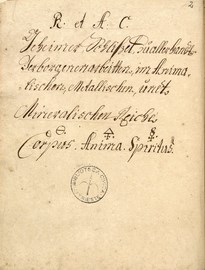 2
R. et A. C.
Geheimer Schlüssel zu allerhandt
Verborgenen arbeitten, im Anima-
lischen, Metallischen, undt
Mineralischen Reiche
Corpus. Anima. Spiritus.